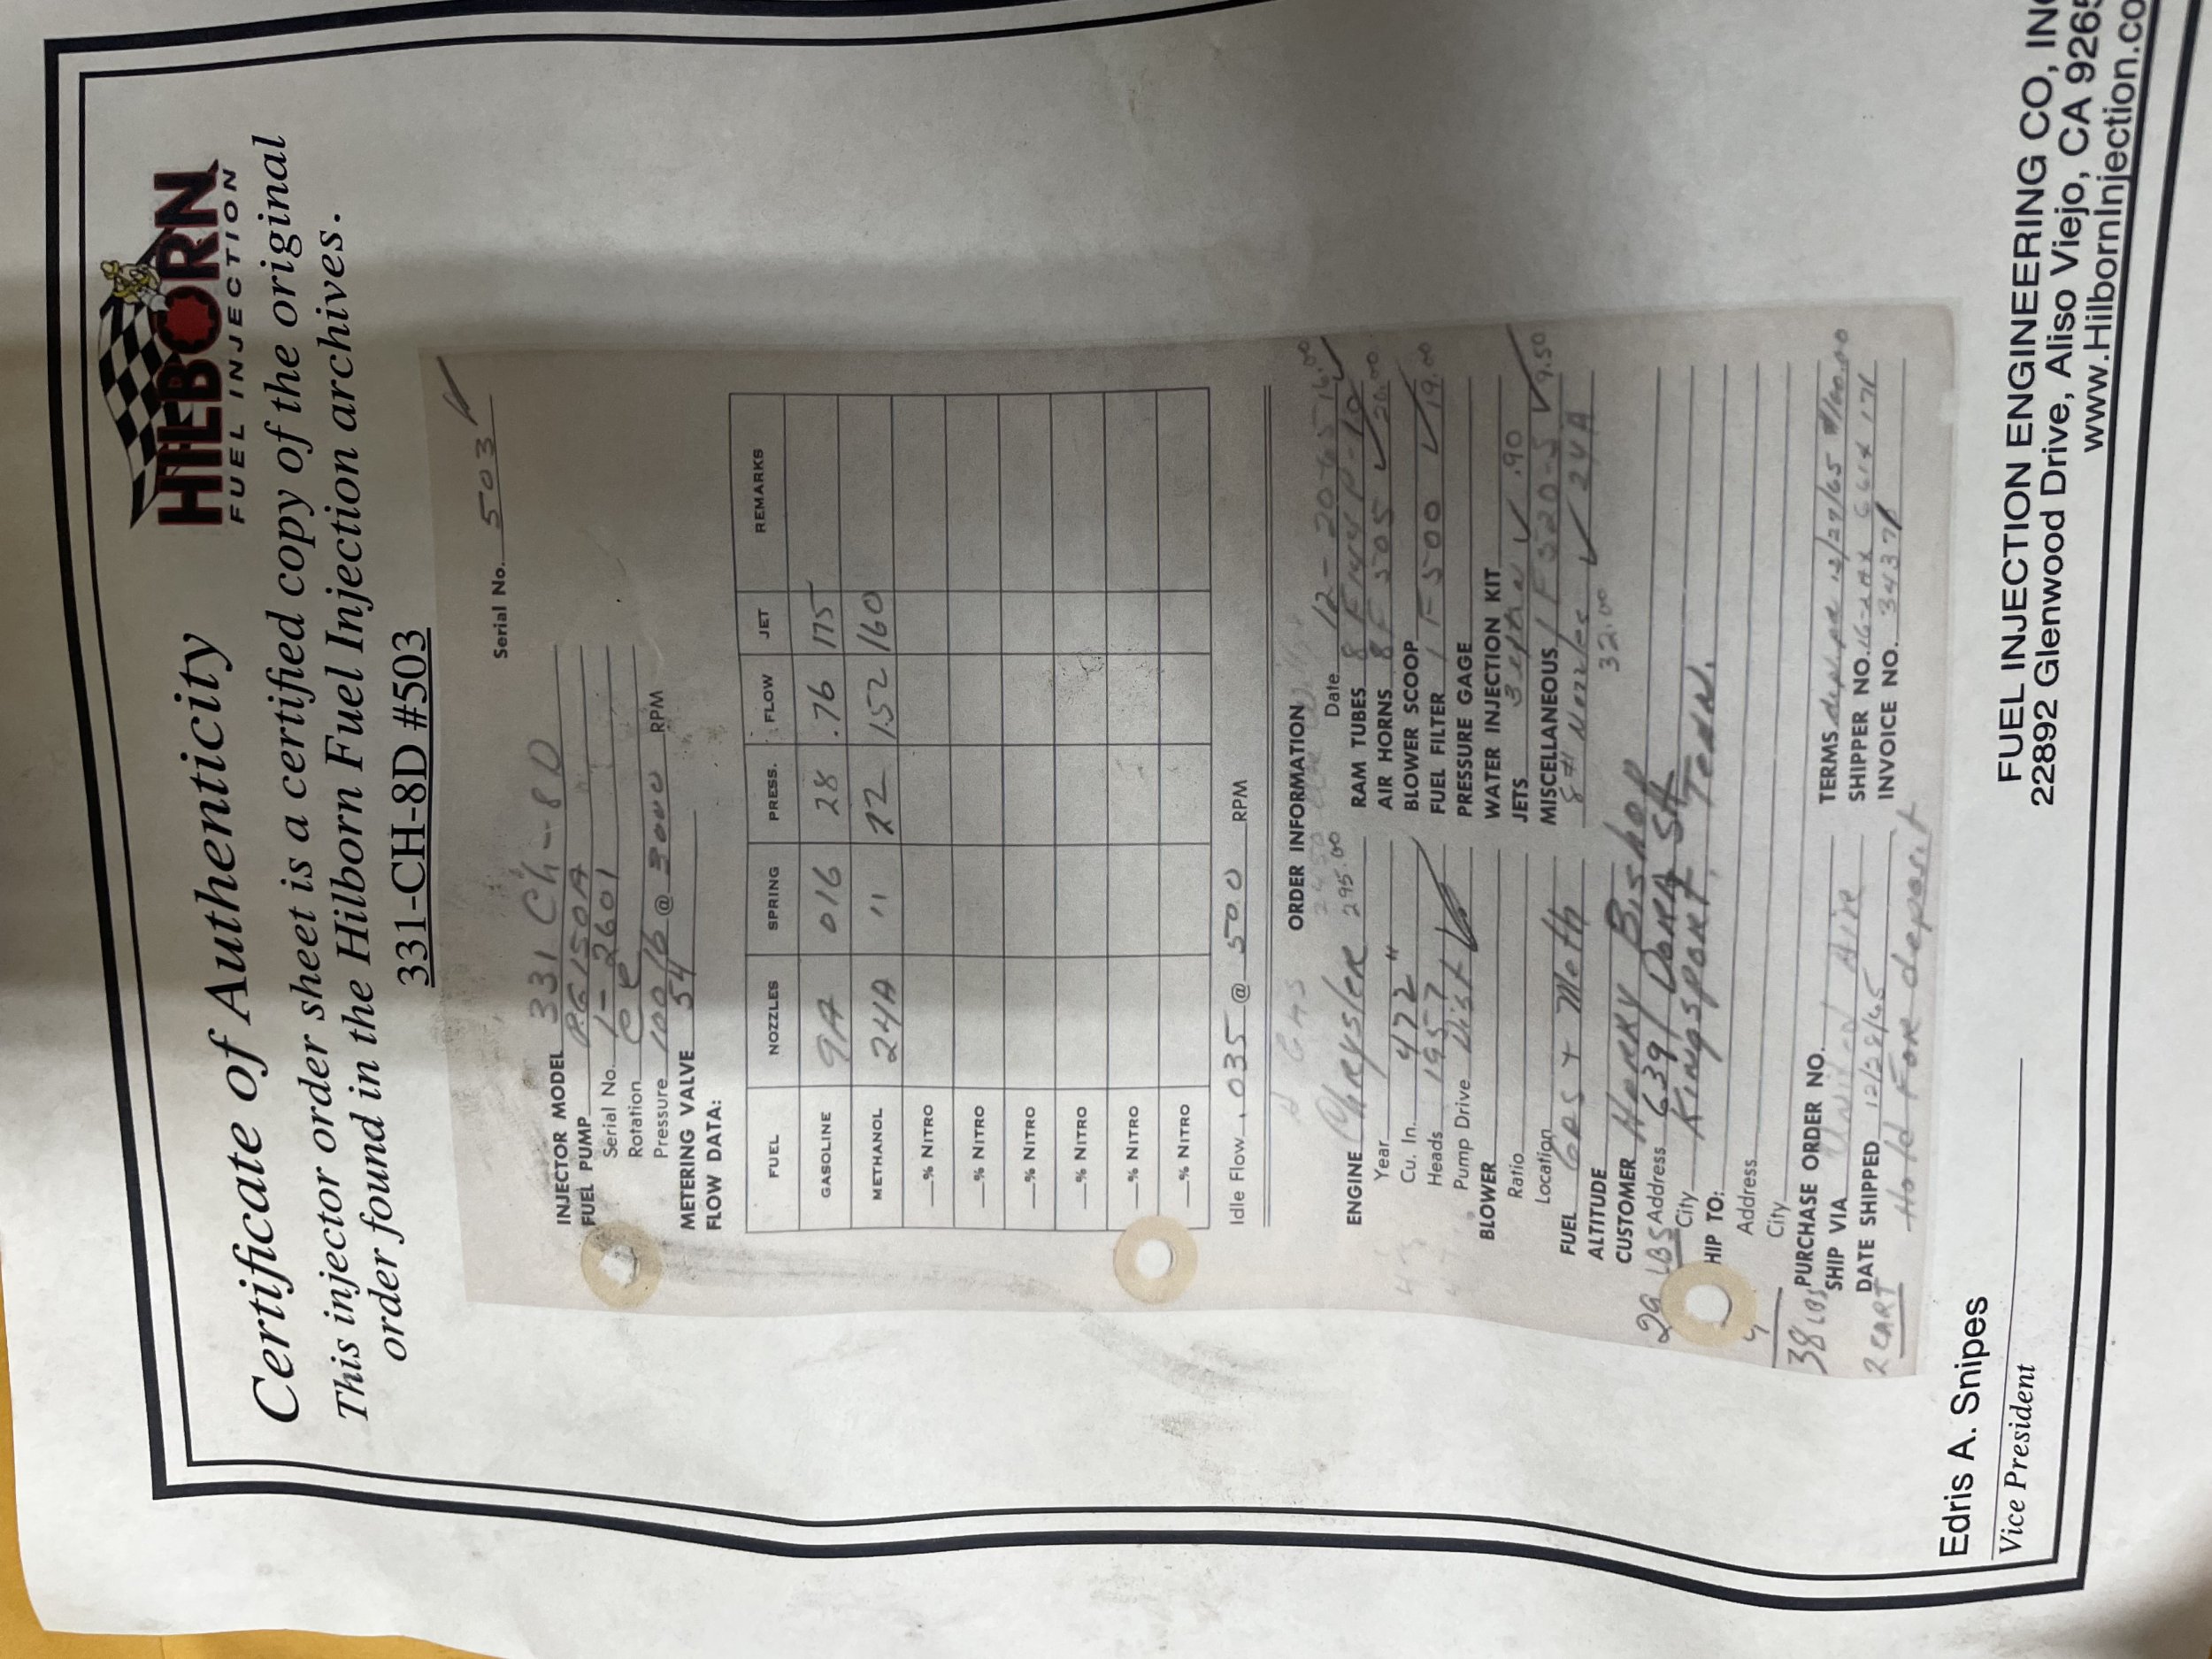 HILBORN
FUEL INJECTION
Certificate of Authenticity
This injector order sheet is a certified copy of the original
order found in the Hilborn Fuel Injection archives.
331-CH-8D #503
Serial No. 503
INJECTOR MODEL 331 Ch-8D
FUEL PUMP PG150A
Serial No. 1-2601
Rotation
Pressure 100 lb @ 3000 RPM
METERING VALVE 54
FLOW DATA:
FUEL NOZZLES SPRING PRESS. FLOW JET REMARKS
GASOLINE 9A 016 28 .76 175
METHANOL 24A " 22 1.52 160
% NITRO
% NITRO
% NITRO
% NITRO
% NITRO
% NITRO
Idle Flow .035 @ 500 RPM
ORDER INFORMATION
Date 12-20-65
ENGINE Chrysler 295.00
Year
Cu. In. 472"
Heads 1957
Pump Drive Dist
BLOWER
Ratio
Location
FUEL GAS + Meth
ALTITUDE
RAM TUBES 8 F144P-10 16.00
AIR HORNS 8 F505
BLOWER SCOOP
FUEL FILTER 1 F500 19.00
PRESSURE GAGE
WATER INJECTION KIT
JETS 3 .90
MISCELLANEOUS 1 F520-5 9.50
8 Nozzles 24A
32.00
CUSTOMER Henry Bishop
Address 639 Dorn St
City Kingsport, Tenn.
HIP TO:
Address
City
29 LBS
38 LBS
PURCHASE ORDER NO.
SHIP VIA United Air
DATE SHIPPED 12/28/65
2 CART
TERMS 12/27/65 100.00
SHIPPER NO.
INVOICE NO. 34371
Hold For deposit
Edris A. Snipes
Vice President
FUEL INJECTION ENGINEERING CO, INC
22892 Glenwood Drive, Aliso Viejo, CA 9265
www.HilbornInjection.co